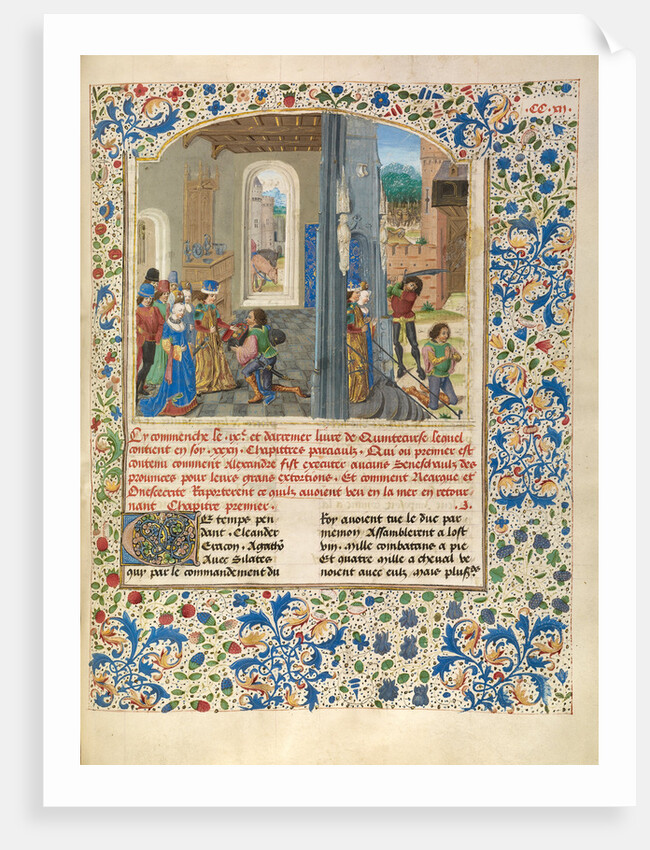 .CC.xii.
Cy commenche le .ixe. et darremer liure de Quintecurse lequel
contient en soy .xxxii. Chapittres parciaulz. Ou ou premier est
contenu comment Alexandre fist executer aucuns Seneschaulz des
prouinces pour leurs grans extortions. Et comment Nearque et
Onesecrite Raporterent ce quilz auoient veu en la mer en retour
nant Chapitre premier. .3.
CE temps pen
dant. Cleander
Eracon. Agatho
Auec Sitares
quy par le commandement du
Roy auoient tue le duc par
menion Assamblerent a lost
vm. Mille combatans a pie
Et quatre mille a cheual ve
noient auec eulz, Mais pluss